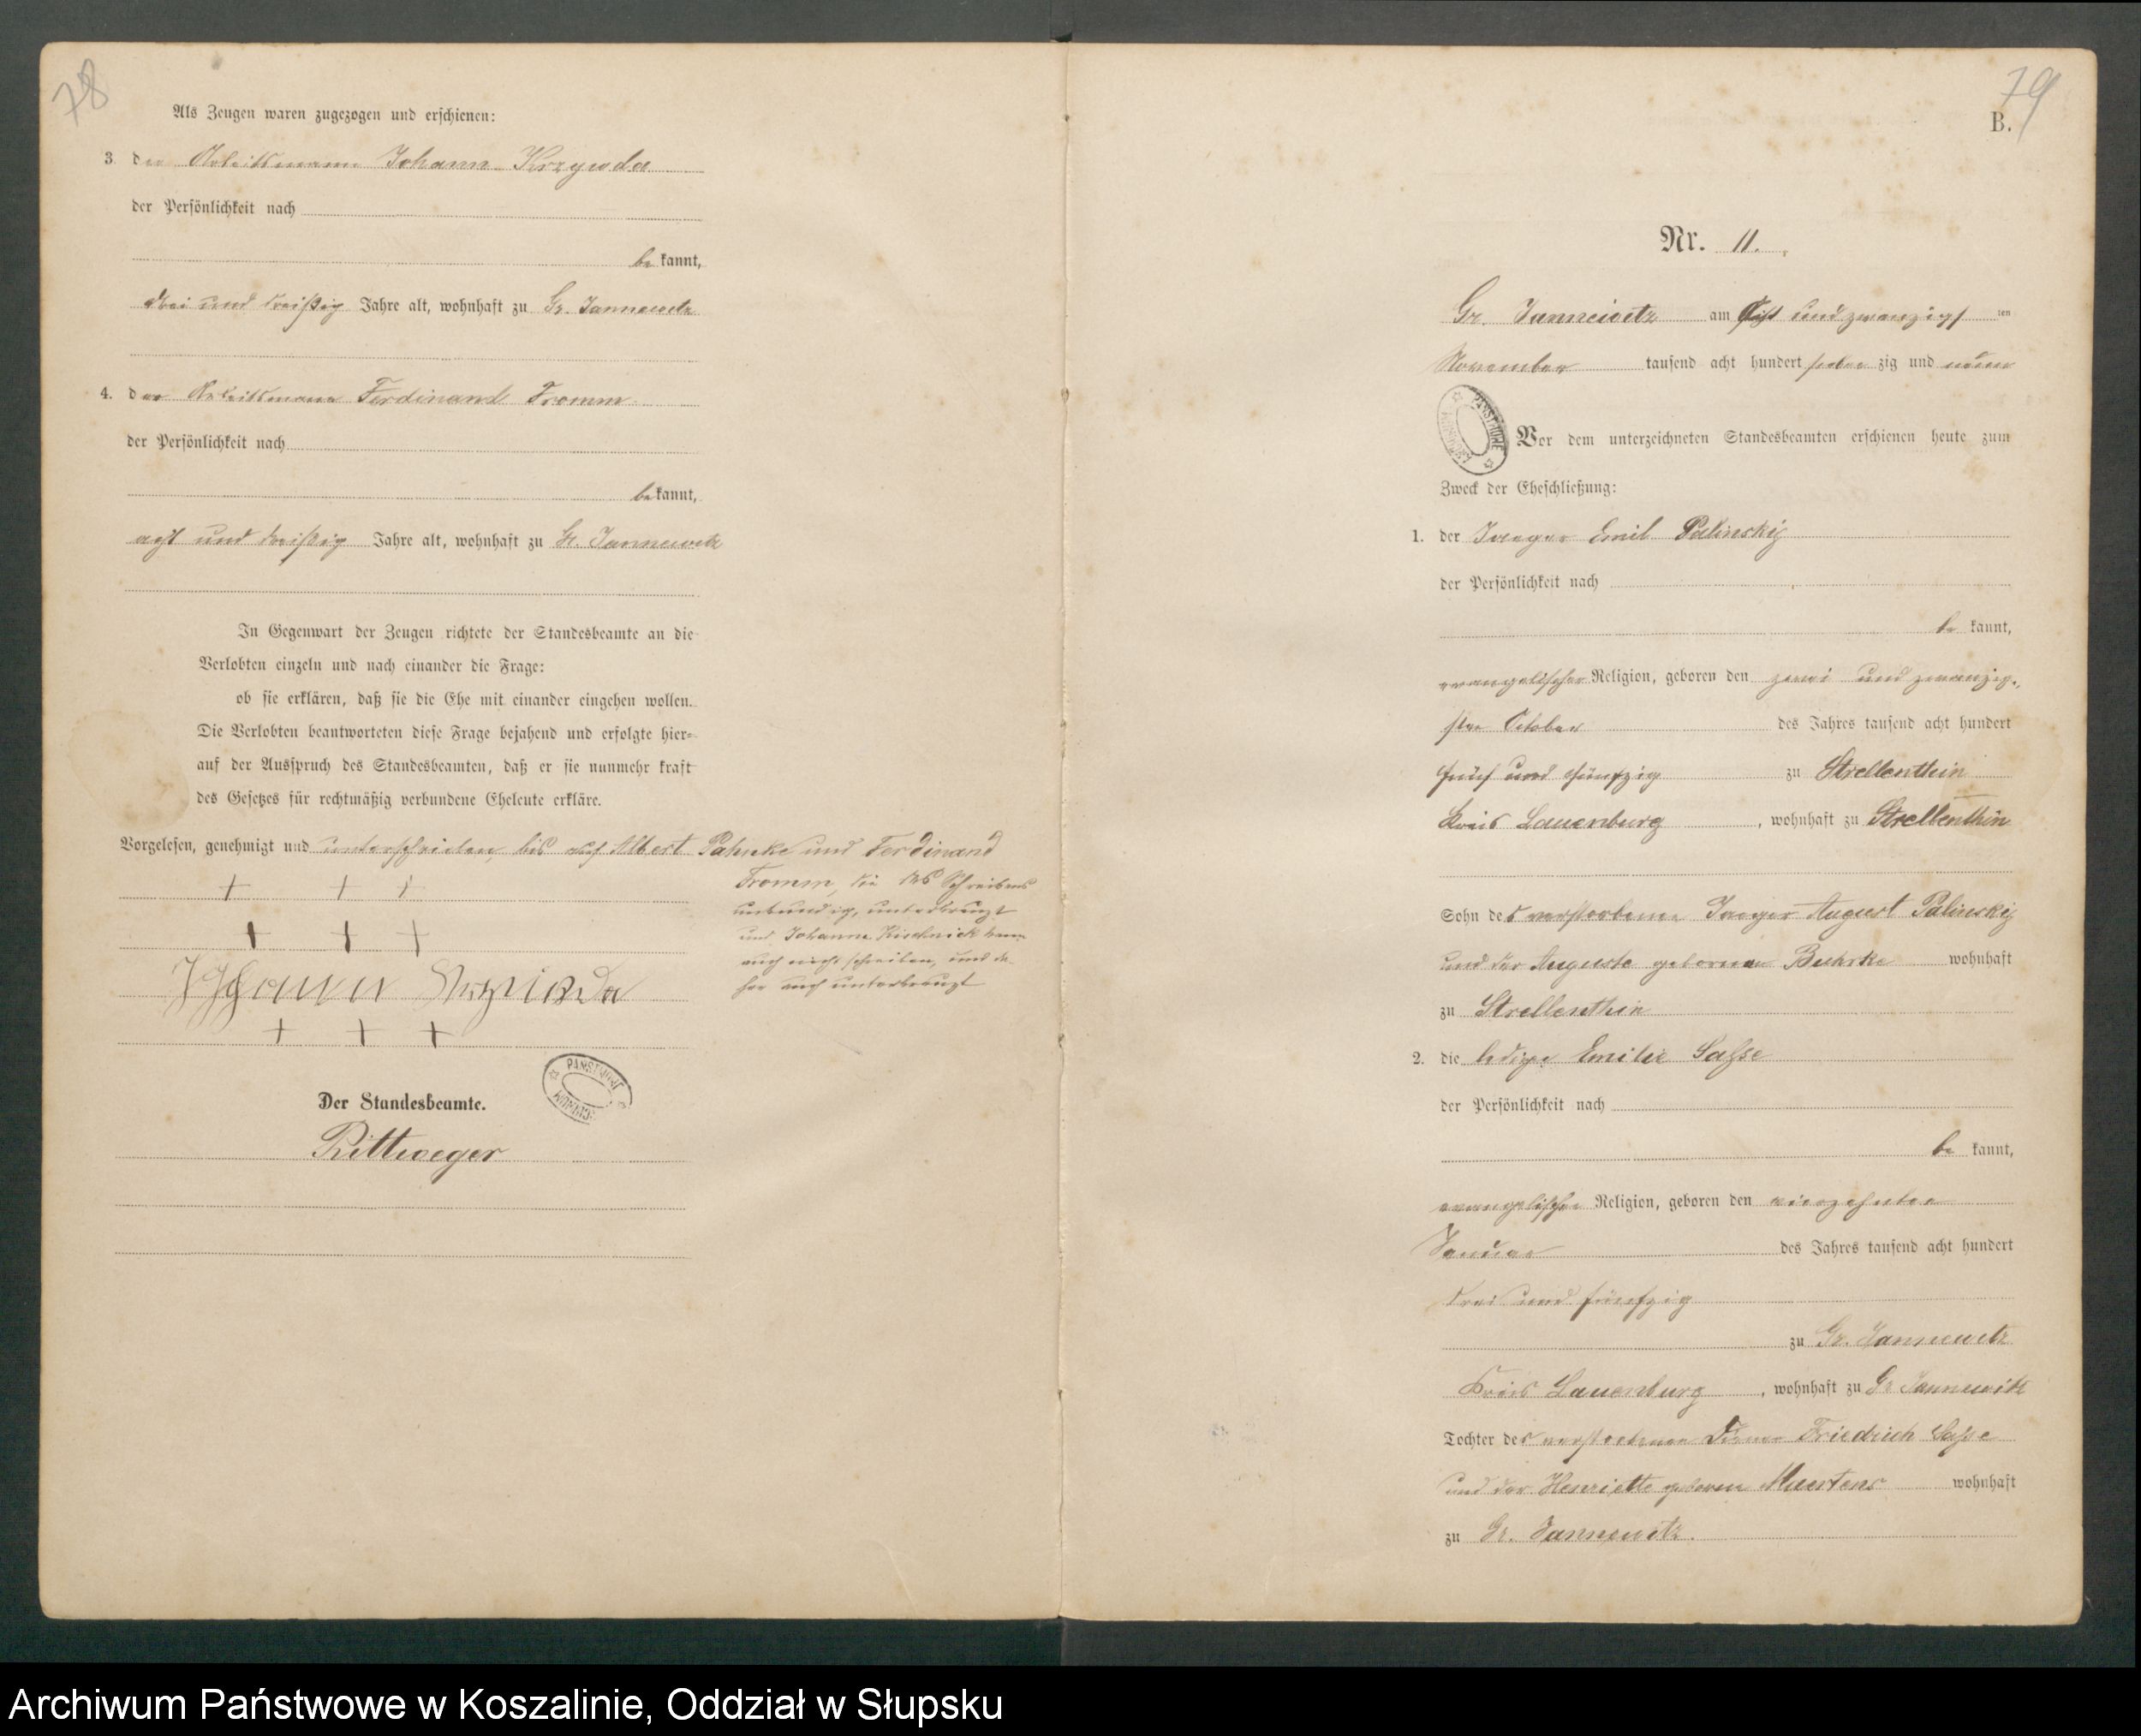 78
Als Zeugen waren zugezogen und erschienen:
3. der Arbeitsmann Johann Krzywda
der Persönlichkeit nach
be kannt,
drei und dreißig Jahre alt, wohnhaft zu Gr. Jannewitz
4. der Arbeitsmann Ferdinand Fromm
der Persönlichkeit nach
bekannt,
acht und dreißig Jahre alt, wohnhaft zu Gr. Jannewitz
In Gegenwart der Zeugen richtete der Standesbeamte an die
Verlobten einzeln und nach einander die Frage:
ob sie erklären, daß sie die Ehe mit einander eingehen wollen.
Die Verlobten beantworteten diese Frage bejahend und erfolgte hier-
auf der Ausspruch des Standesbeamten, daß er sie nunmehr kraft
des Gesetzes für rechtmäßig verbundene Eheleute erkläre.
Vorgelesen, genehmigt und unterschrieben, bis auf Albert Pahnke und Ferdinand
Fromm, die des Schreibens
unkundig, unterkreuzt
und Johanna Kischnick kann
auch nicht schreiben, und da-
her auch unterkreuzt
+ + +
+ + +
Johann Krzywda
+ + +
Der Standesbeamte.
Rittweger
79
B.
Nr. 11.
Gr. Jannewitz am acht und zwanzigsten
November tausend acht hundert sieben zig und neun
Vor dem unterzeichneten Standesbeamten erschienen heute zum
Zweck der Eheschließung:
1. der Jaeger Emil Palinski
der Persönlichkeit nach
be kannt,
evangelischer Religion, geboren den zwei und zwanzig-
sten October des Jahres tausend acht hundert
fünf und fünfzig zu Strellenthin
Kreis Lauenburg, wohnhaft zu Strellenthin
Sohn des verstorbenen Jaeger August Palinski
und der Auguste geborenen Buhrke wohnhaft
zu Strellenthin
2. die ledige Emilie Saße
der Persönlichkeit nach
be kannt,
evangelischer Religion, geboren den vierzehnten
Januar des Jahres tausend acht hundert
drei und fünfzig
zu Gr. Jannewitz
Kreis Lauenburg, wohnhaft zu Gr. Jannewitz
Tochter des verstorbenen Friedrich Saße
und der Henriette geboren Maertens wohnhaft
zu Gr. Jannewitz.
Archiwum Państwowe w Koszalinie, Oddział w Słupsku